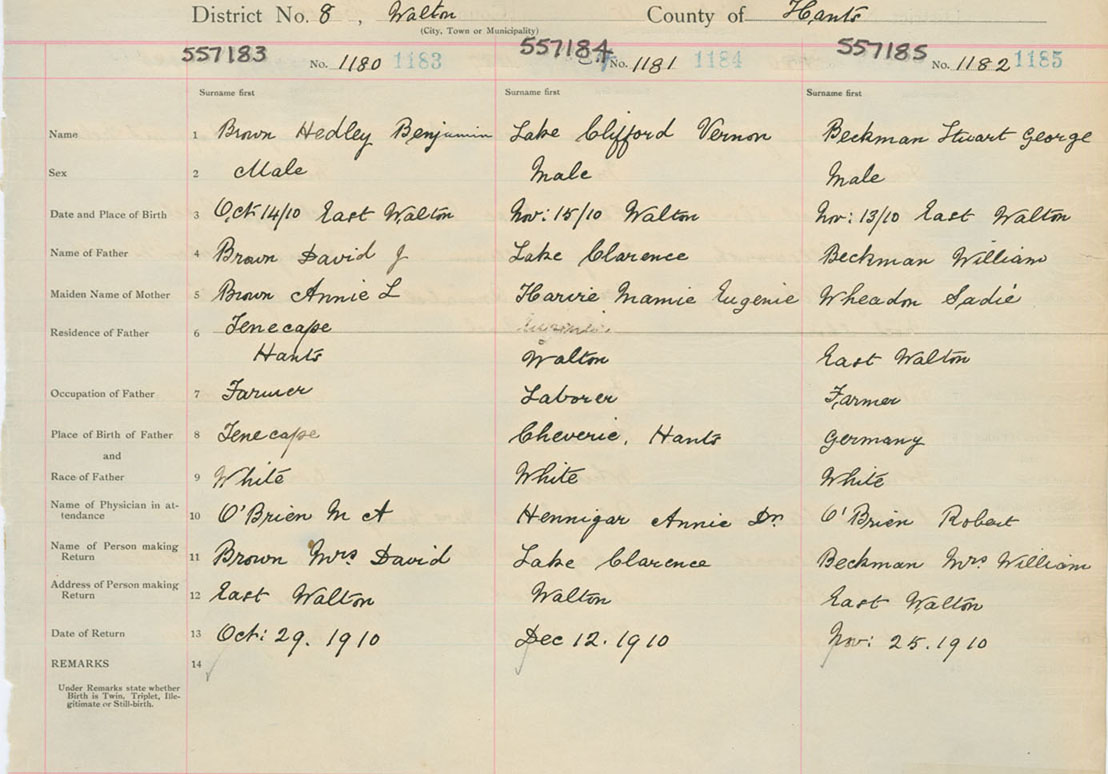 District No. 8, Walton County of Hants
(City, Town or Municipality)
557183 557184 557185
No. 1180 1183 No. 1181 1184 No. 1182 1185
Surname first Surname first Surname first
Name 1 Brown Hedley Benjamin Lake Clifford Vernon Beckman Stuart George
Sex 2 Male Male Male
Date and Place of Birth 3 Oct 14/10 East Walton Nov: 15/10 Walton Nov: 13/10 East Walton
Name of Father 4 Brown David J Lake Clarence Beckman William
Maiden Name of Mother 5 Brown Annie L Harvie Mamie Eugenie Wheadon Sadie
Residence of Father 6 Tenecape
Hants Walton East Walton
Occupation of Father 7 Farmer Laborer Farmer
Place of Birth of Father 8 Tenecape Cheverie, Hants Germany
and
Race of Father 9 White White White
Name of Physician in at-
tendance 10 O'Brien M A Hennigar Annie Dr. O'Brien Robert
Name of Person making
Return 11 Brown Mrs. David Lake Clarence Beckman Mrs William
Address of Person making
Return 12 East Walton Walton East Walton
Date of Return 13 Oct: 29. 1910 Dec 12. 1910 Nov: 25. 1910
REMARKS 14
Under Remarks state whether
Birth is Twin, Triplet, Ille-
gitimate or Still-birth.